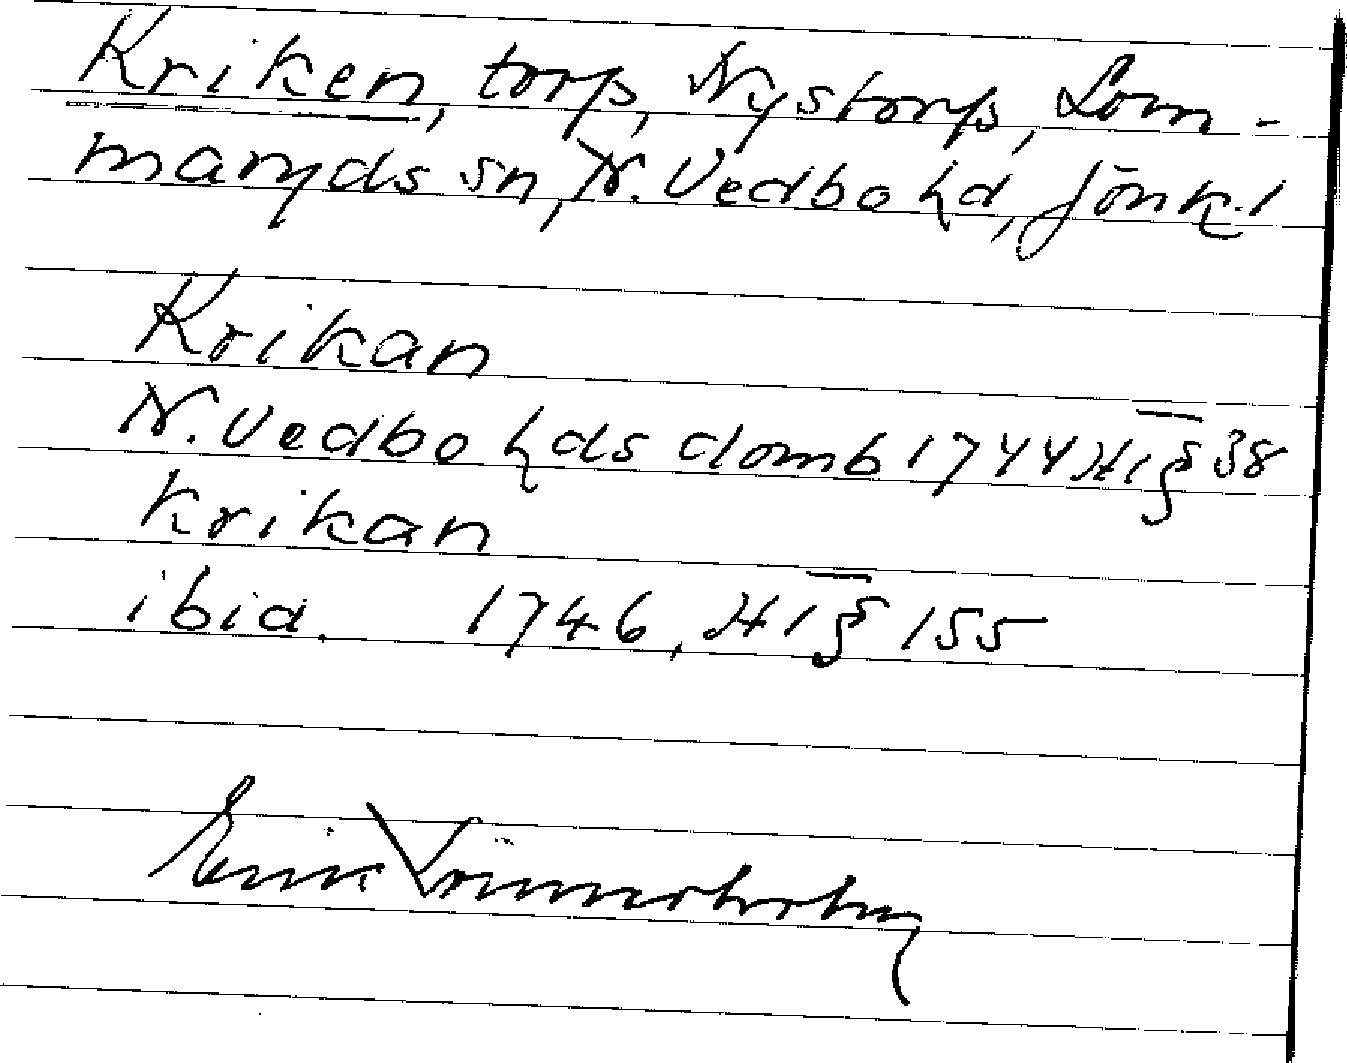 Kriken, torp, Nystorp, Lom-
maryds sn, N. Vedbo hd, Jönk. l
Krikan
N. Vedbo hds domb 1744 HT § 38
Krikan
ibid. 1746, HT § 155